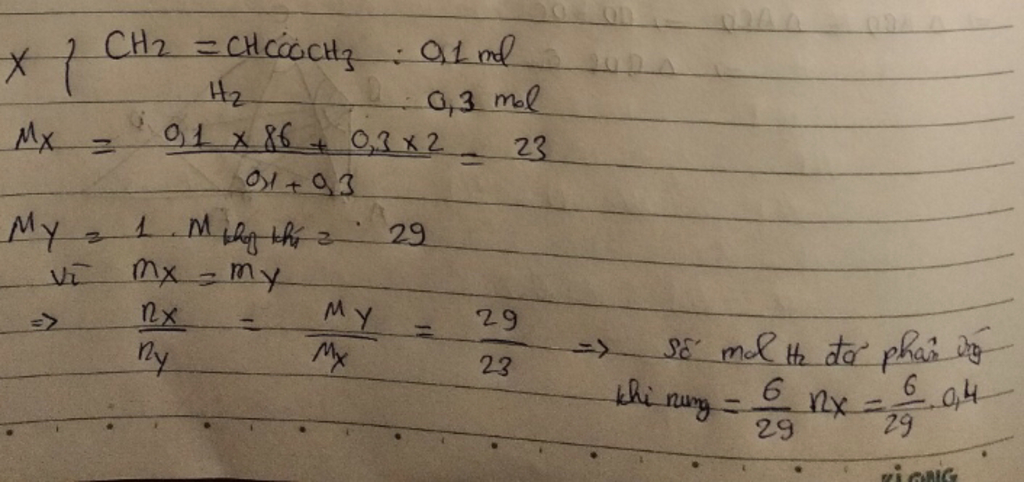 X { CH2 = CHCOOCH3 : 0,1 mol
H2 : 0,3 mol
MX = (0,1 x 86 + 0,3 x 2) / (0,1 + 0,3) = 23
MY = 1 . M không khí = 29
Vì mX = mY
=> nX/nY = MY/MX = 29/23 => số mol H2 đã phản ứng
khi nung = 6/29 nX = 6/29 . 0,4
KLONG